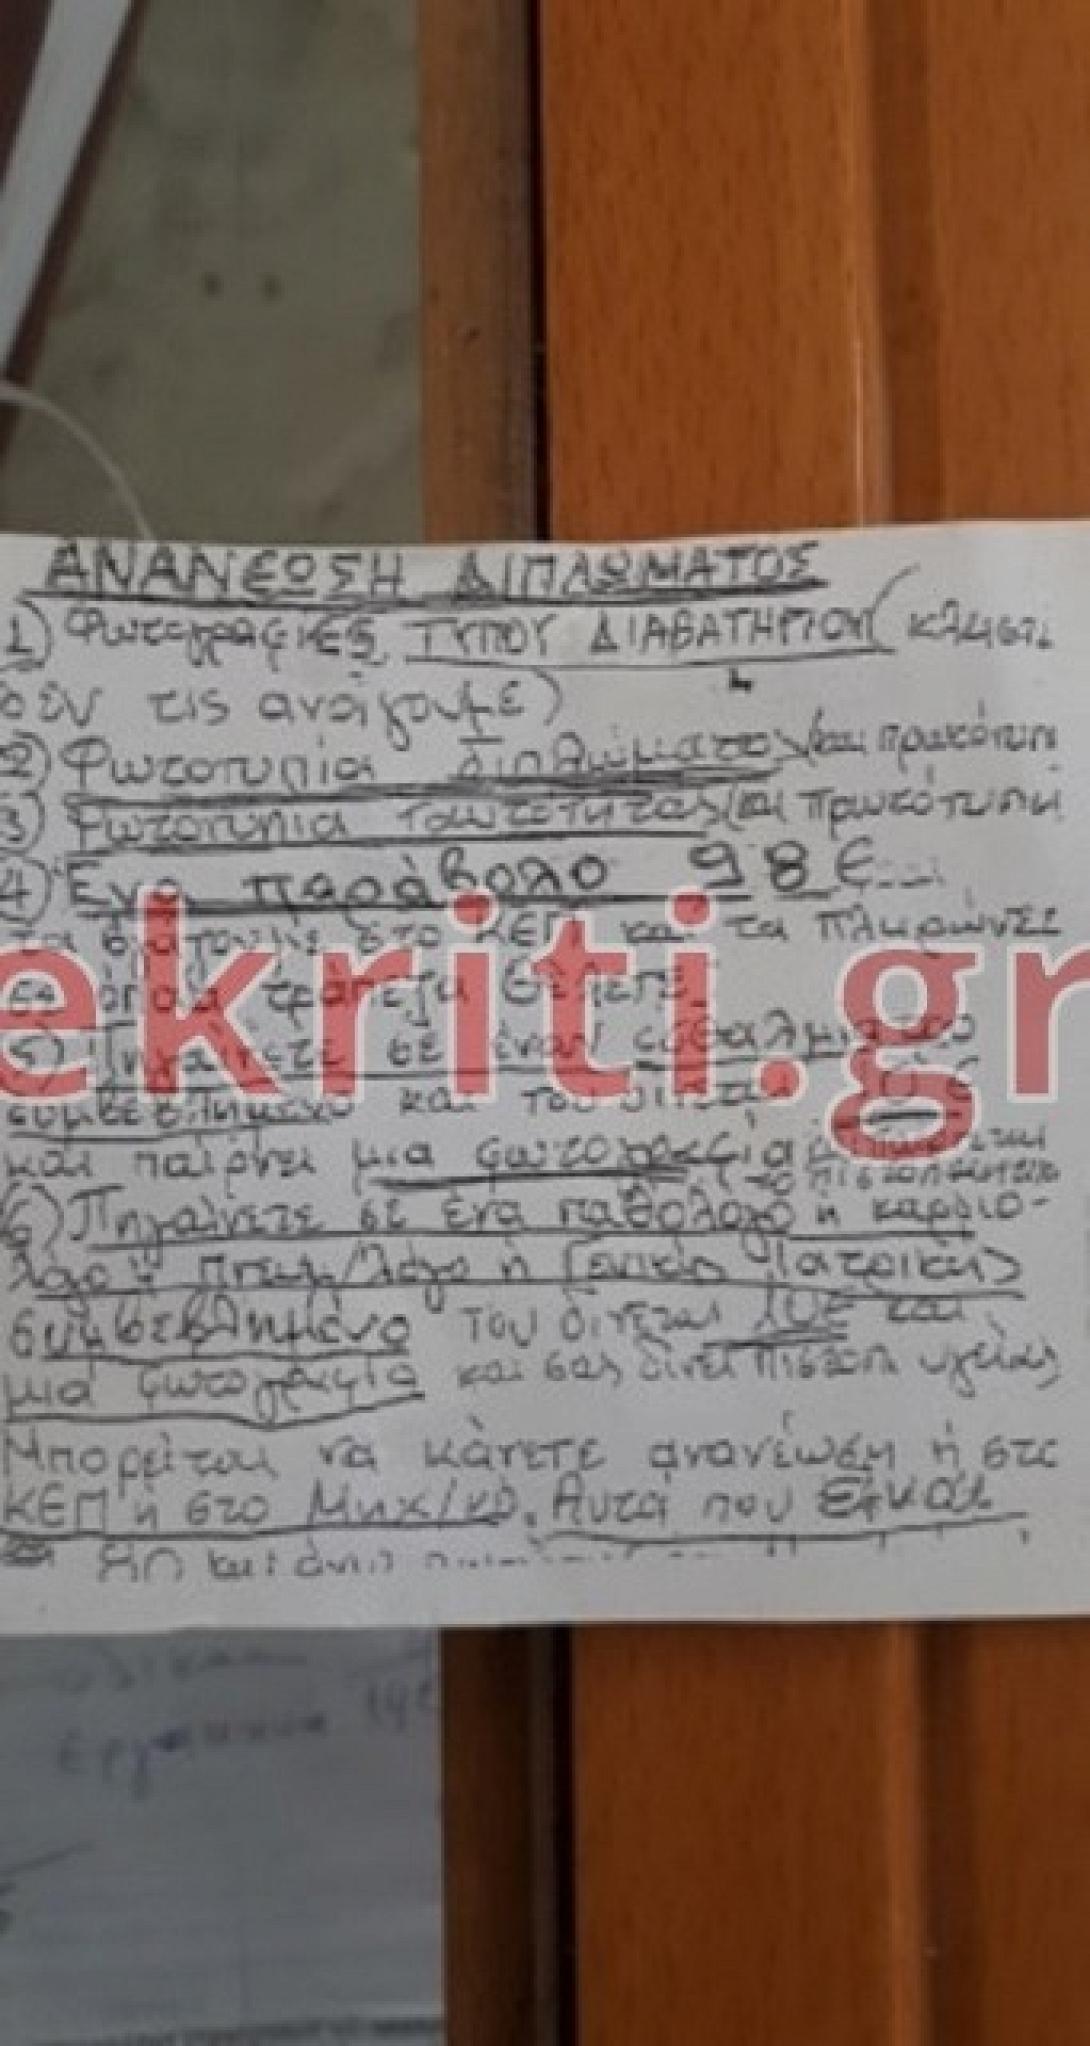 ΑΝΑΝΕΩΣΗ ΔΙΠΛΩΜΑΤΟΣ
1) Φωτογραφιες ΤΥΠΟΥ ΔΙΑΒΑΤΗΡΙΟΥ (κλειστι
δεν τις ανοίγουμε)
2) Φωτοτυπία διπλώματος (και πρωτότυπο
3) Φωτοτυπια ταυτότητας (και πρωτότυπη
4) Ένα παράβολο 98 €
τα βγάζουμε στο ΚΕΠ και τα πληρώνετε
σε όποια τράπεζα θέλετε
5) Πηγαίνετε σε έναν οφθαλμιατρο
συμβεβλημένο και του δίνεται 10 €
και παίρνει μια φωτογραφία
το πιστοποιητικό
6) Πηγαίνετε σε ένα παθολόγο ή καρδιο-
λόγο ή Πνευμ/λόγο ή Γενικής Ιατρικής
συμβεβλημένο του δινεται 10€ και
μια φωτογραφία και σας δίνει πιστοπ υγείας
Μπορείται να κάνετε ανανέωση ή στο
ΚΕΠ ή στο Μηχ/κό. Αυτά που
80 και άνω
ekriti.gr